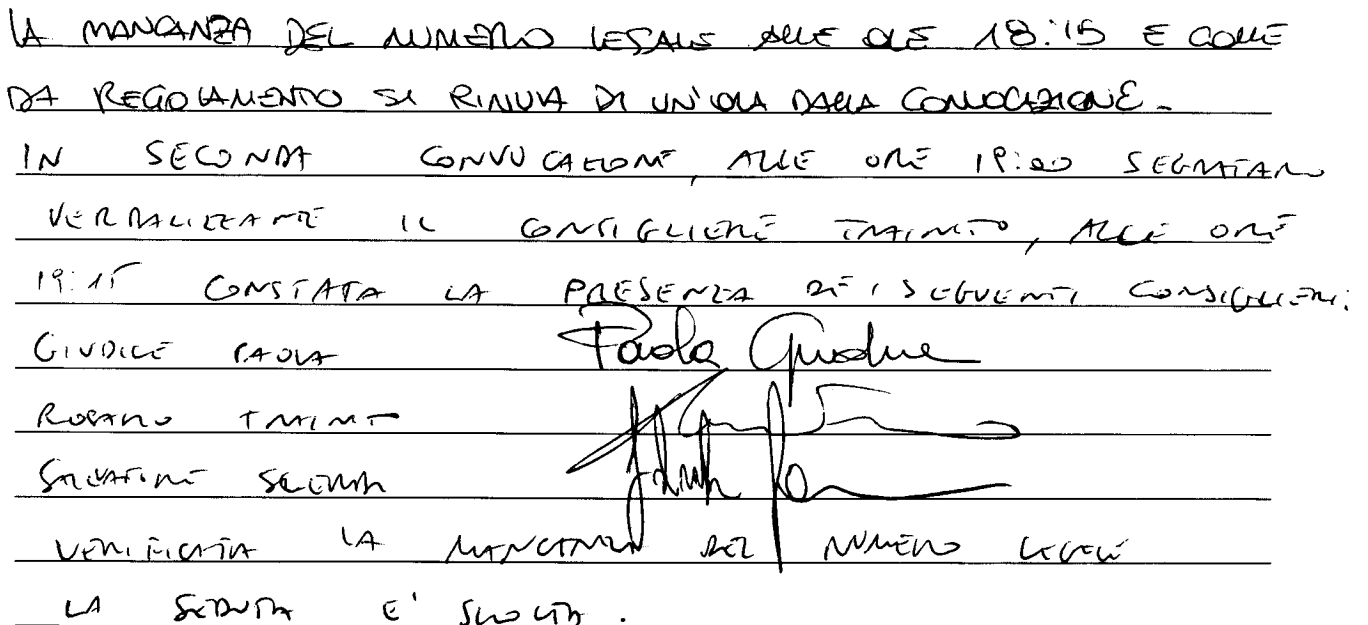 LA MANCANZA DEL NUMERO LEGALE ALLE ORE 18:15 E COME
DA REGOLAMENTO SI RINVIA DI UN'ORA DALLA CONVOCAZIONE.
IN SECONDA CONVOCAZIONE, ALLE ORE 19:00 SEGRETARIO
VERBALIZZANTE IL CONSIGLIERE TRIMITO, ALLE ORE
19:15 CONSTATA LA PRESENZA DEI SEGUENTI CONSIGLIERI:
GIUDICE PAOLA Paola Giudice
ROSARIO
SALVATORE
VERIFICATA LA MANCANZA DEL NUMERO LEGALE
LA SEDUTA E' SCIOLTA.